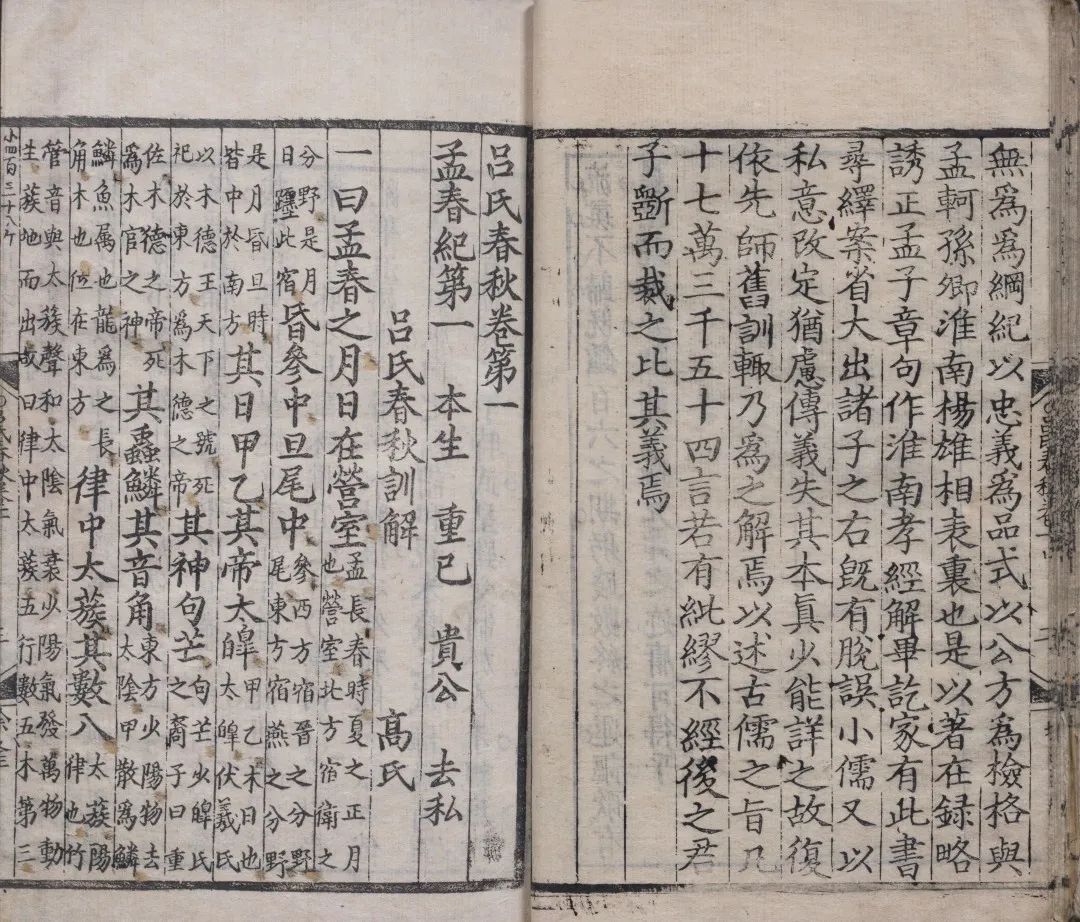 無爲爲綱紀以忠義爲品式以公方爲檢格與
孟軻孫卿淮南楊雄相表裏也是以著在録略
誘正孟子章句作淮南孝經解畢訖家有此書
尋繹案省大出諸子之右旣有脫誤小儒又以
私意改定猶慮傳義失其本真少能詳之故復
依先師舊訓輒乃爲之解焉以述古儒之旨凡
十七萬三千五十四言若有紕繆不經後之君
子斵而裁之比其義焉
吕氏春秋卷第一
孟春紀第一 本生 重已 貴公 去私
吕氏春秋訓解 高氏
一曰孟春之月日在營室孟長春時夏之正月
也營室北方宿衛之
分野是月
日躔此宿昏參中旦尾中參西方宿晉之分野
尾東方宿燕之分野
是月昏旦時
皆中於南方其日甲乙其帝太皡甲乙木日也
太皡伏羲氏
以木德王天下之號死
祀於東方爲木德之帝其神句芒句芒少皡氏
之裔子曰重
佐木德之帝死
爲木官之神其蟲鱗其音角東方少陽物去
太陰甲散爲鱗
鱗魚属也龍爲之長
角木也位在東方律中太蔟其數八太蔟陽
律也竹
管音與太蔟聲和太陰氣衰少陽氣發萬物動
生蔟地而出故曰律中太蔟五行數五木第三